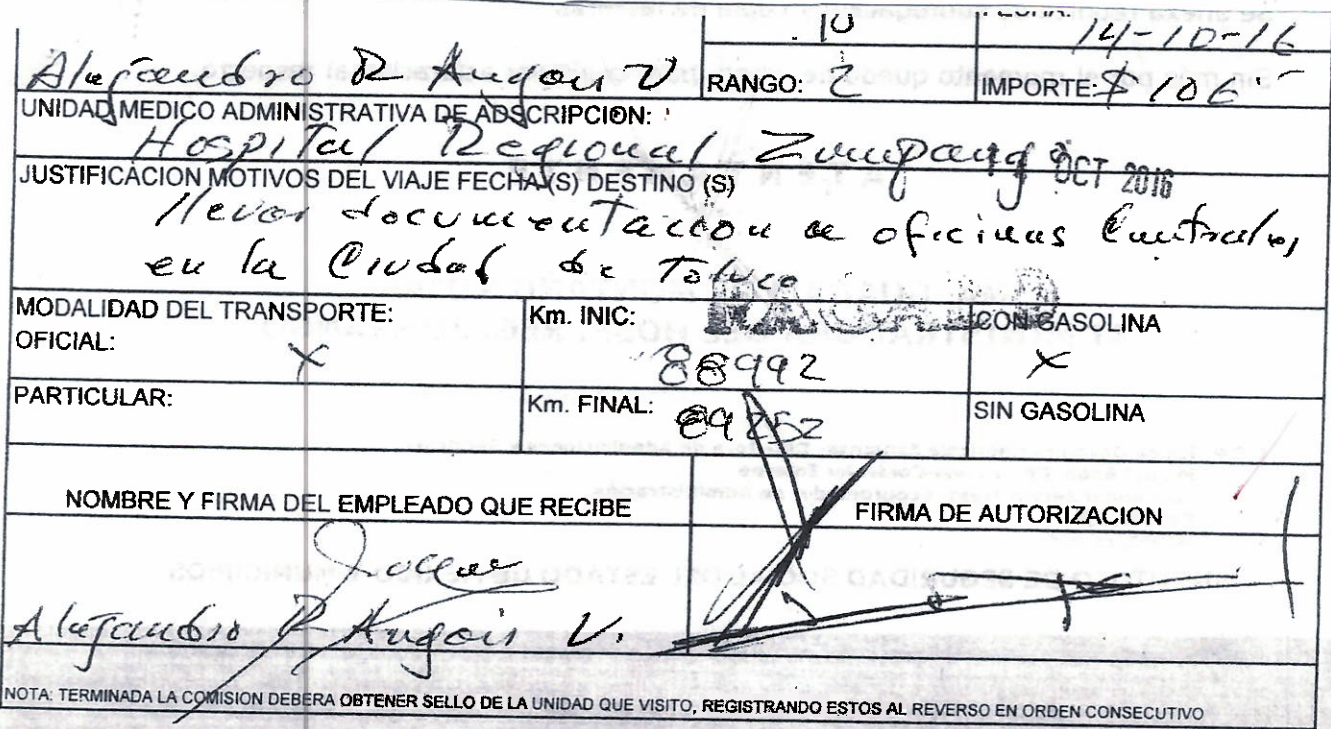 10 14-10-16
Alejandro R Angon V RANGO: 2 IMPORTE: $ 106.-
UNIDAD MEDICO ADMINISTRATIVA DE ADSCRIPCION:
Hospital Regional Zumpango OCT 2016
JUSTIFICACION MOTIVOS DEL VIAJE FECHA (S) DESTINO (S)
llevar documentación a oficinas Centrales,
en la Ciudad de Toluca
MODALIDAD DEL TRANSPORTE: Km. INIC: PAGADO CON GASOLINA
OFICIAL: X 88992 X
PARTICULAR: Km. FINAL: 89252 SIN GASOLINA
NOMBRE Y FIRMA DEL EMPLEADO QUE RECIBE FIRMA DE AUTORIZACION
Alejandro R Angon V.
NOTA: TERMINADA LA COMISION DEBERA OBTENER SELLO DE LA UNIDAD QUE VISITO, REGISTRANDO ESTOS AL REVERSO EN ORDEN CONSECUTIVO